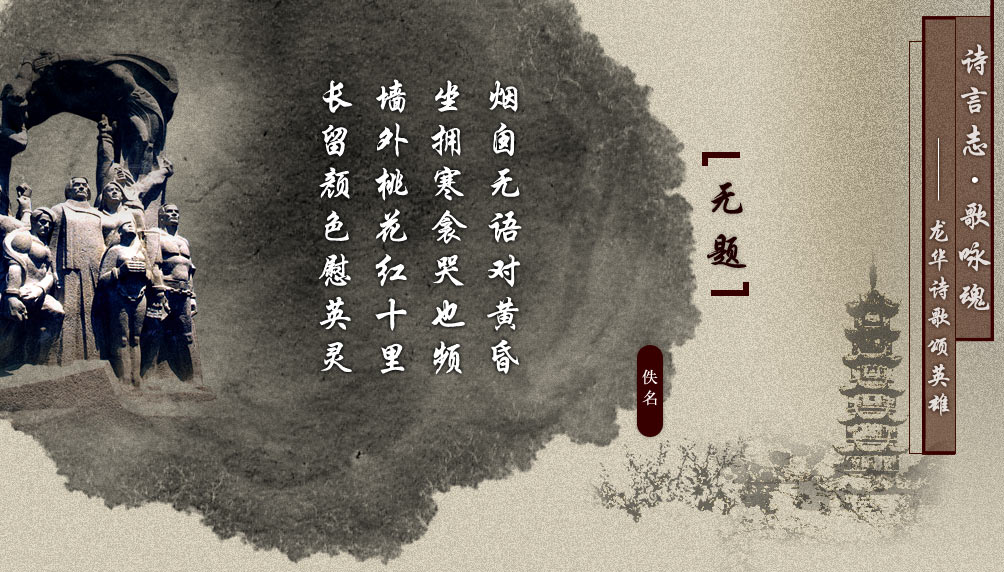 诗言志·歌咏魂
——龙华诗歌颂英雄
无题
佚名
烟囱无语对黄昏
坐拥寒衾哭也频
墙外桃花红十里
长留颜色慰英灵